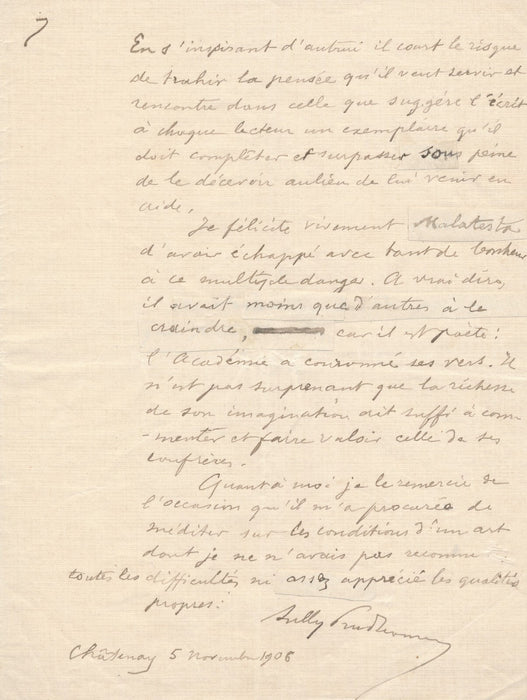 7
En s'inspirant d'autrui il court le risque
de trahir la pensée qu'il veut servir et
rencontre dans celle que suggère l'écrit
à chaque lecteur un exemplaire qu'il
doit compléter et surpasser sous peine
de le décevoir au lieu de lui venir en
aide.
Je félicite vivement Malatesta
d'avoir échappé avec tant de bonheur
à ce multiple danger. A vrai dire,
il avait moins que d'autres à le
craindre, car il est poète:
l'Académie a couronné ses vers. Il
n'est pas surprenant que la richesse
de son imagination ait suffi à com-
-menter et faire valoir celle de ses
confrères.
Quant à moi je le remercie de
l'occasion qu'il m'a procurée de
méditer sur les conditions d'un art
dont je ne n'avais pas reconnu
toutes les difficultés, ni assez apprécié les qualités
propres.
Sully Prudhomme
Châtenay 5 novembre 1906